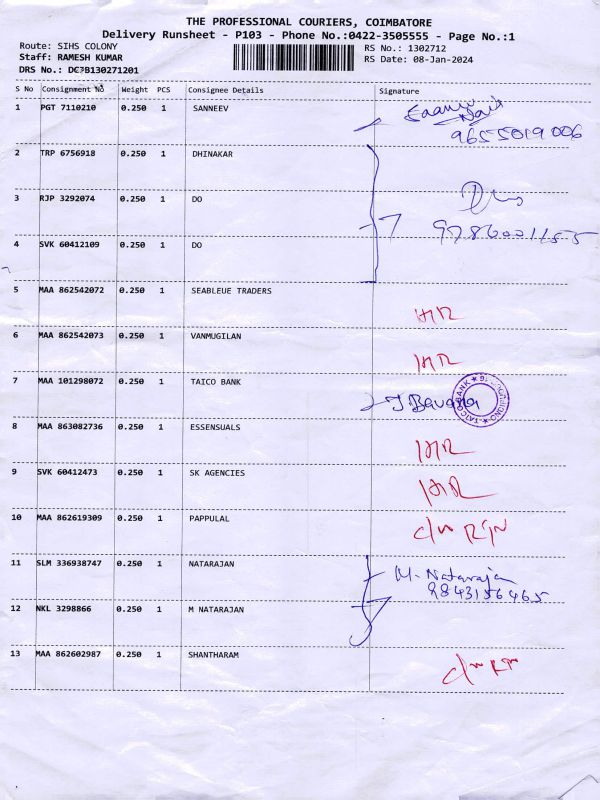 THE PROFESSIONAL COURIERS, COIMBATORE
Delivery Runsheet - P103 - Phone No.:0422-3505555 - Page No.:1
Route: SIHS COLONY RS No.: 1302712
Staff: RAMESH KUMAR RS Date: 08-Jan-2024
DRS No.:
S No Consignment No Weight PCS Consignee Details Signature
1 PGT 7110210 0.250 1 SANNEEV
9655019006
2 TRP 6756918 0.250 1 DHINAKAR
3 RJP 3292074 0.250 1 DO
4 SVK 60412109 0.250 1 DO
5 MAA 862542072 0.250 1 SEABLEUE TRADERS
6 MAA 862542073 0.250 1 VANMUGILAN
7 MAA 101298072 0.250 1 TAICO BANK J Bavana
TAICO BANK
8 MAA 863082736 0.250 1 ESSENSUALS
9 SVK 60412473 0.250 1 SK AGENCIES
10 MAA 862619309 0.250 1 PAPPULAL
11 SLM 336938747 0.250 1 NATARAJAN M. Natarajan
9843156465
12 NKL 3298866 0.250 1 M NATARAJAN
13 MAA 862602987 0.250 1 SHANTHARAM